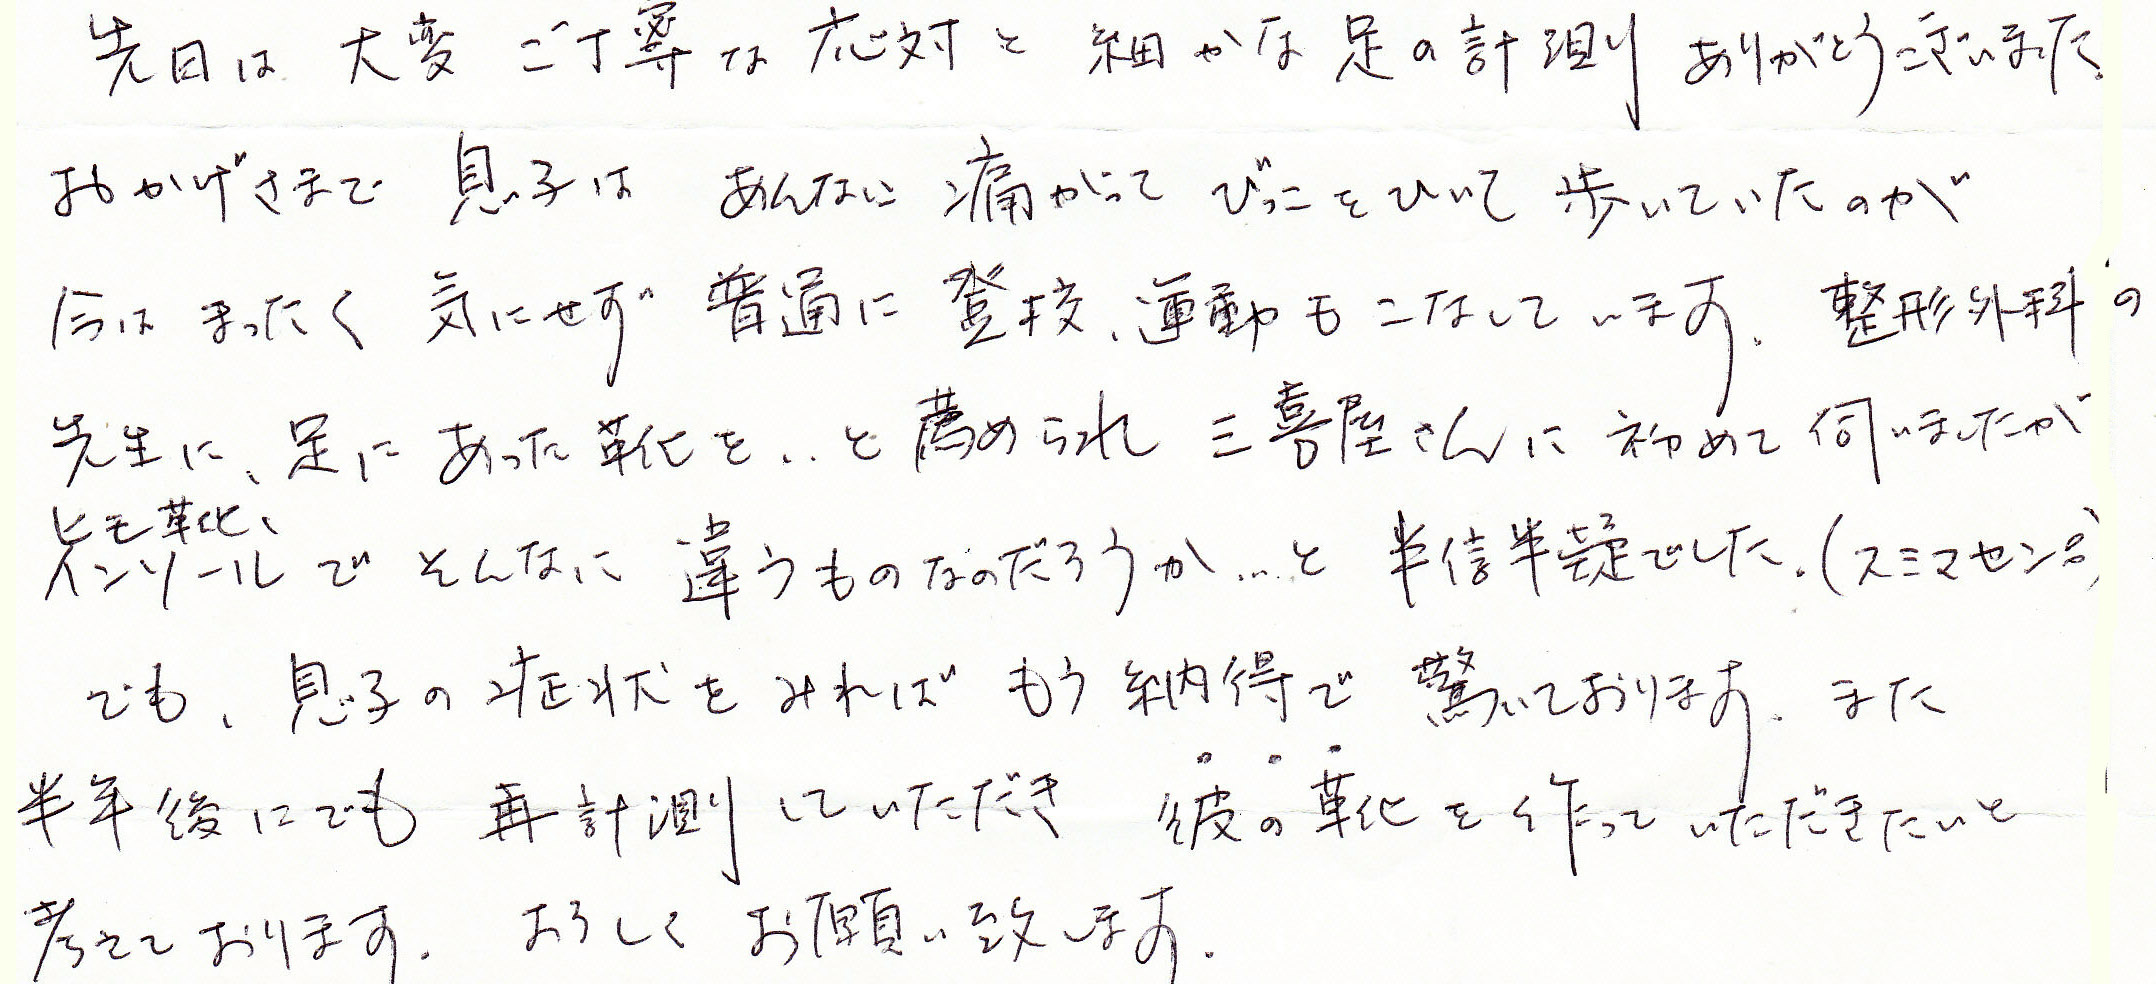 先日は 大変 ご丁寧な 応対と 細かな 足の計測 ありがとうございました。
おかげさまで 息子は あんなに 痛がって びっこをひいて 歩いていたのが
今は まったく 気にせず 普通に 登校、運動も こなしています。整形外科の
先生に、足に あった靴を‥と 薦められ 三喜屋さんに 初めて 伺いましたが
ヒモ靴、
インソールで そんなに 違うものなのだろうか…と 半信半疑でした。(スミマセン)
でも、息子の 症状を みれば もう 納得で 驚いております。また
半年後にでも 再計測していただき 彼の靴を 作っていただきたいと
考えております。よろしく お願い致します。